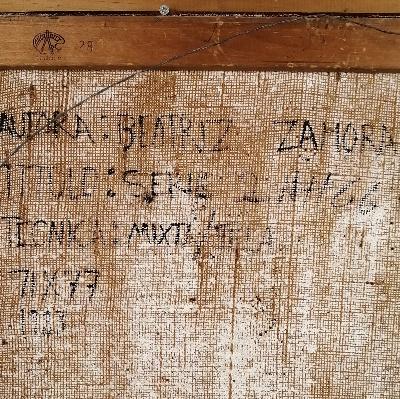 28
AUTORA: BEATRIZ ZAMORA
TITULO: SERIE
TECNICA: MIXTA/TELA
71X77